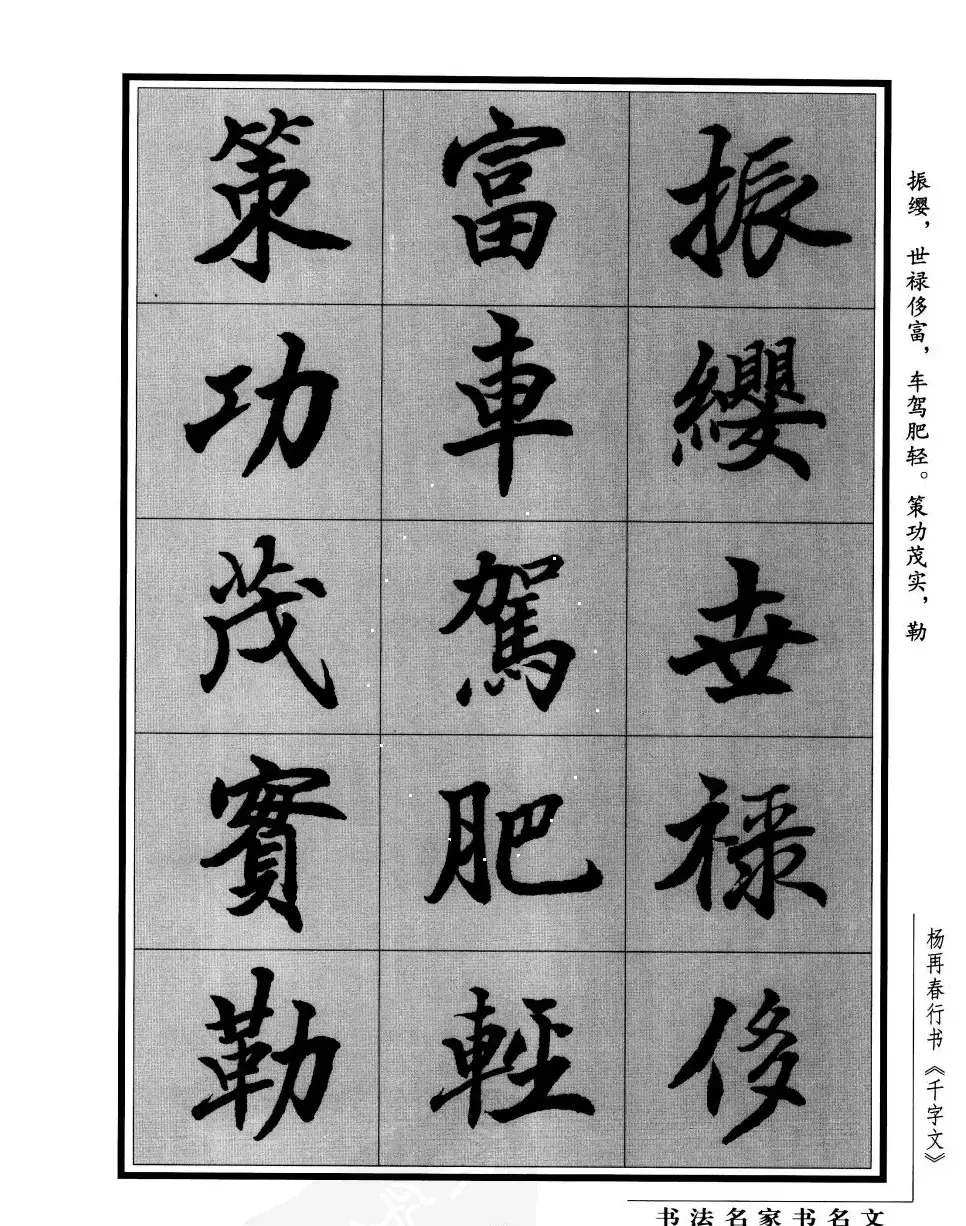 振纓世禄侈
富車駕肥輕
策功茂實勒
振缨，世禄侈富，车驾肥轻。策功茂实，勒
杨再春行书《千字文》
书法名家书名文